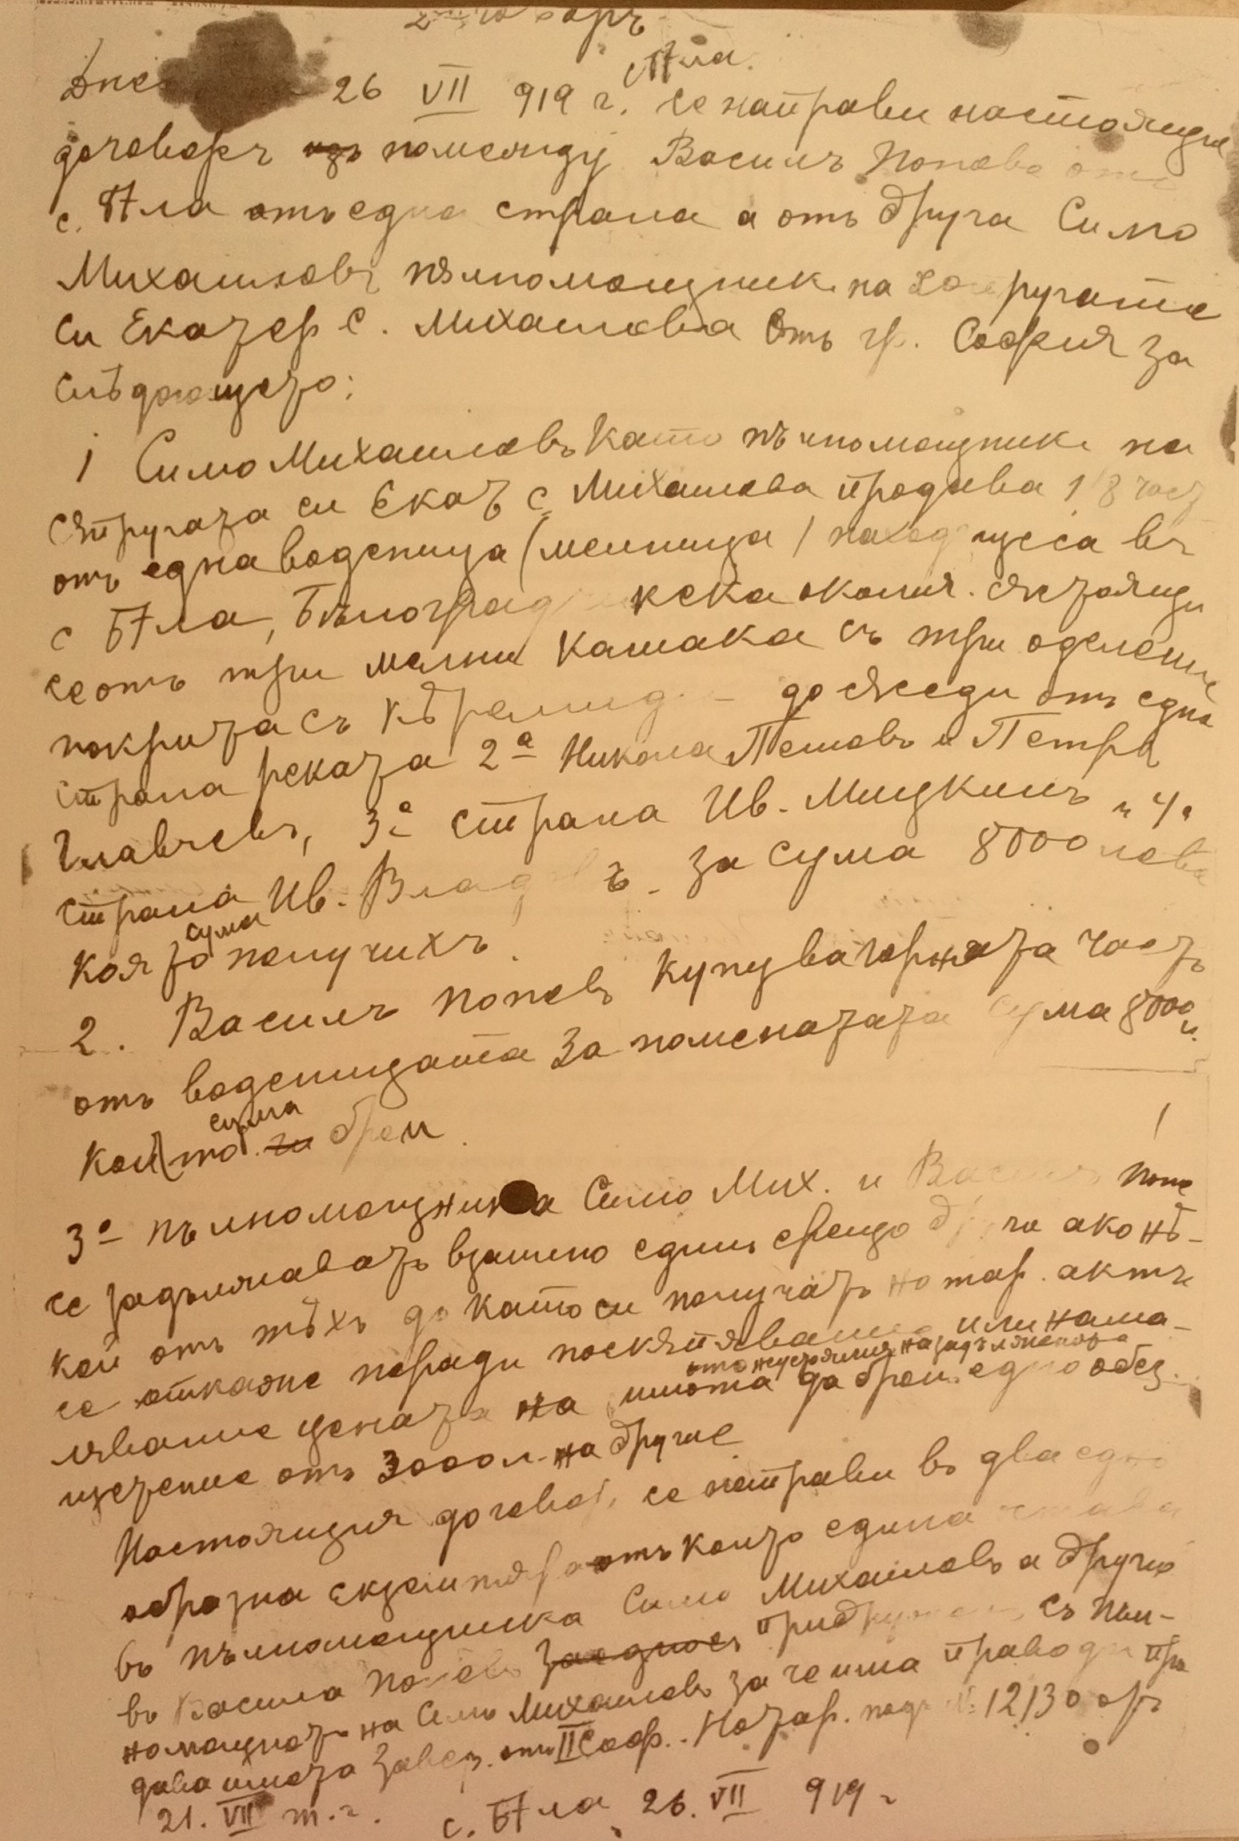 договоръ
Днесъ 26 VII 919 г. с. Бѣла се направи настоящия
договоръ помежду Василъ Поповъ отъ
с. Бѣла отъ една страна а отъ друга Симо
Михаиловъ пълномощник на съпругата
си Екатер. С. Михаилова отъ гр. София за
слѣдующето:
1 Симо Михаиловъ като пълномощникъ на
съпругата си Екат. С. Михайлова продава 1/8 часть
отъ една воденица (мелница) находящеса въ
с Бѣла, Бѣлоградчикска околия. състояща
се отъ три мелни камака съ три оделение
покрита съ кѣремиди - до съседи отъ една
страна реката 2а Никола Пешовъ и Петръ
Главчевъ, 3а страна Ив. Мицкинъ и 4а
страна Ив. Владовъ. за сума 8000 лева
която сума получихъ.
2. Василъ Поповъ купува горнята часть
отъ воденицата за поменатата сума 8000 л.
която сума брои.
3а пълномощника Симо Мих. и Василъ Попо
се задължаватъ взаимно единъ срещо други ако нѣ-
кой отъ тѣхъ до като си получатъ нотар. актъ
се откаже поради поскѫпявание или нама-
лявание цената на имота да брои едно обез
щетение отъ 3000 л. на другие
Настоящия договоръ се направи въ два едно
образни екземпляра отъ които единия остава
въ пълномощника Симо Михаиловъ а другия
въ Василъ Поповъ заедносъ придружен съ Пъл-
номощното на Симо Михаиловъ за чеима право да про
дава имота завер. отъ II Соф. Нотар. подъ № 12130 отъ
21. VII т.г. с. Бѣла 26. VII 919 г